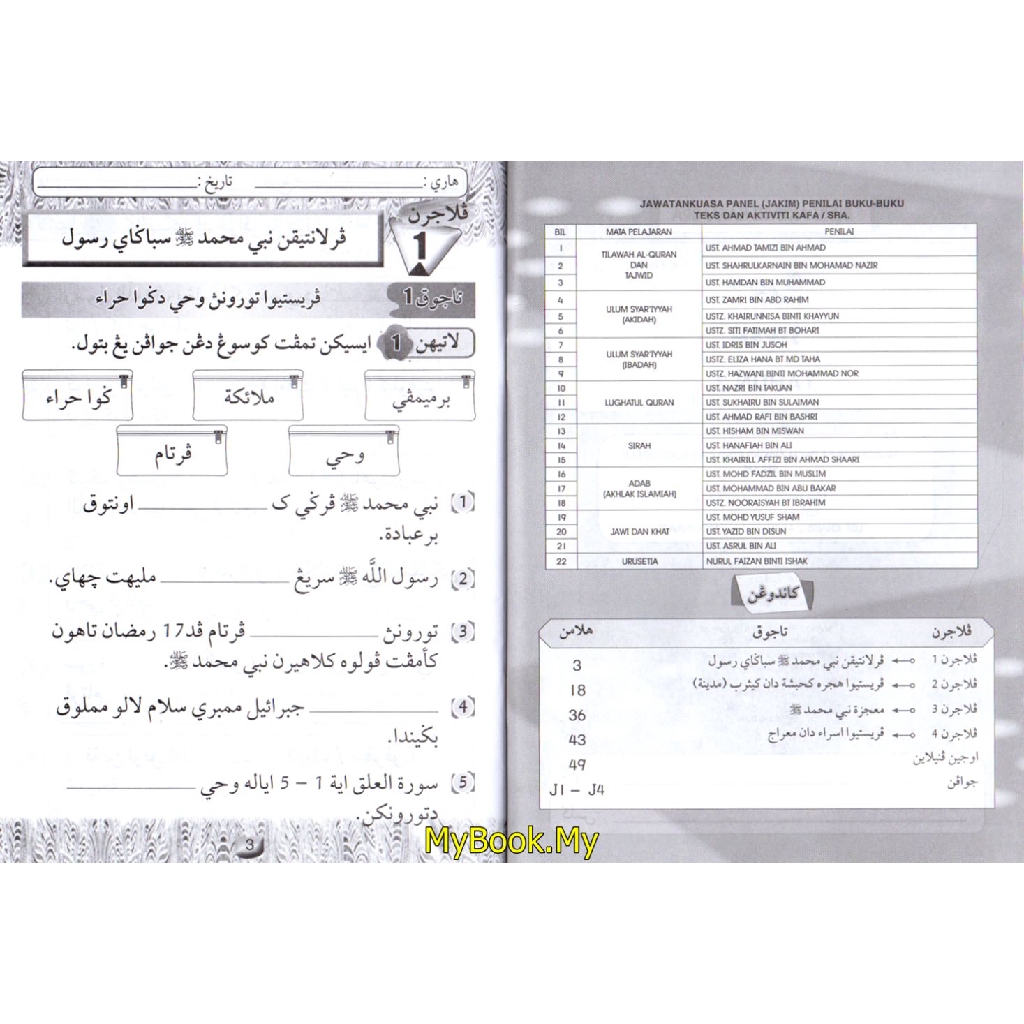 هاري : تاريخ :
ڤلاجرن
1
ڤرلانتيقن نبي محمد ﷺ سباݢاي رسول
تاجوق 1
ڤريستيوا تورونڽ وحي دݢوا حراء
لاتيهن 1
ايسيكن تمڤت كوسوڠ دڠن جواڤن يڠ بتول.
برميمڤي
ملائكة
ݢوا حراء
وحي
ڤرتام
(1) نبي محمد ﷺ ڤرݢي ك ____________ اونتوق
برعبادة.
(2) رسول اللَّه ﷺ سريڠ ____________ مليهت چهاي.
(3) تورونڽ ____________ ڤرتام ڤد 17 رمضان تاهون
كأمڤت ڤولوه كلاهيرن نبي محمد ﷺ.
(4) ____________ جبرائيل ممبري سلام لالو مملوق
بݢيندا.
(5) سورة العلق اية 1 – 5 اياله وحي ____________
دتورونكن.
3
JAWATANKUASA PANEL (JAKIM) PENILAI BUKU-BUKU
TEKS DAN AKTIVITI KAFA / SRA.
BIL MATA PELAJARAN PENILAI
TILAWAH AL-QURAN
DAN
TAJWID
1 UST. AHMAD TAMIZI BIN AHMAD
2 UST. SHAHRULKARNAIN BIN MOHAMAD NAZIR
3 UST. HAMDAN BIN MUHAMMAD
ULUM SYAR'IYYAH
(AKIDAH)
4 UST. ZAMRI BIN ABD RAHIM
5 USTZ. KHAIRUNNISA BINTI KHAYYUN
6 USTZ. SITI FATIMAH BT BOHARI
ULUM SYAR'IYYAH
(IBADAH)
7 UST. IDRIS BIN JUSOH
8 USTZ. ELIZA HANA BT MD TAHA
9 USTZ. HAZWANI BINTI MOHAMMAD NOR
LUGHATUL QURAN
10 UST. NAZRI BIN TAKUAN
11 UST. SUKHAIRU BIN SULAIMAN
12 UST. AHMAD RAFI BIN BASHRI
SIRAH
13 UST. HISHAM BIN MISWAN
14 UST. HANAFIAH BIN ALI
15 UST. KHAIRILL AFFIZI BIN AHMAD SHAARI
ADAB
(AKHLAK ISLAMIAH)
16 UST. MOHD FADZIL BIN MUSLIM
17 UST. MOHAMMAD BIN ABU BAKAR
18 USTZ. NOORAISYAH BT IBRAHIM
JAWI DAN KHAT
19 UST. MOHD YUSUF SHAM
20 UST. YAZID BIN DISUN
21 UST. ASRUL BIN ALI
22 URUSETIA NURUL FAIZAN BINTI ISHAK
كاندوڠن
ڤلاجرن تاجوق هلامن
ڤلاجرن 1 ڤرلانتيقن نبي محمد ﷺ سباݢاي رسول 3
ڤلاجرن 2 ڤريستيوا هجره كحبشة دان كيثرب (مدينة) 18
ڤلاجرن 3 معجزة نبي محمد ﷺ 36
ڤلاجرن 4 ڤريستيوا اسراء دان معراج 43
اوجين ڤنيلاين 49
جواڤن J1 – J4
MyBook.My